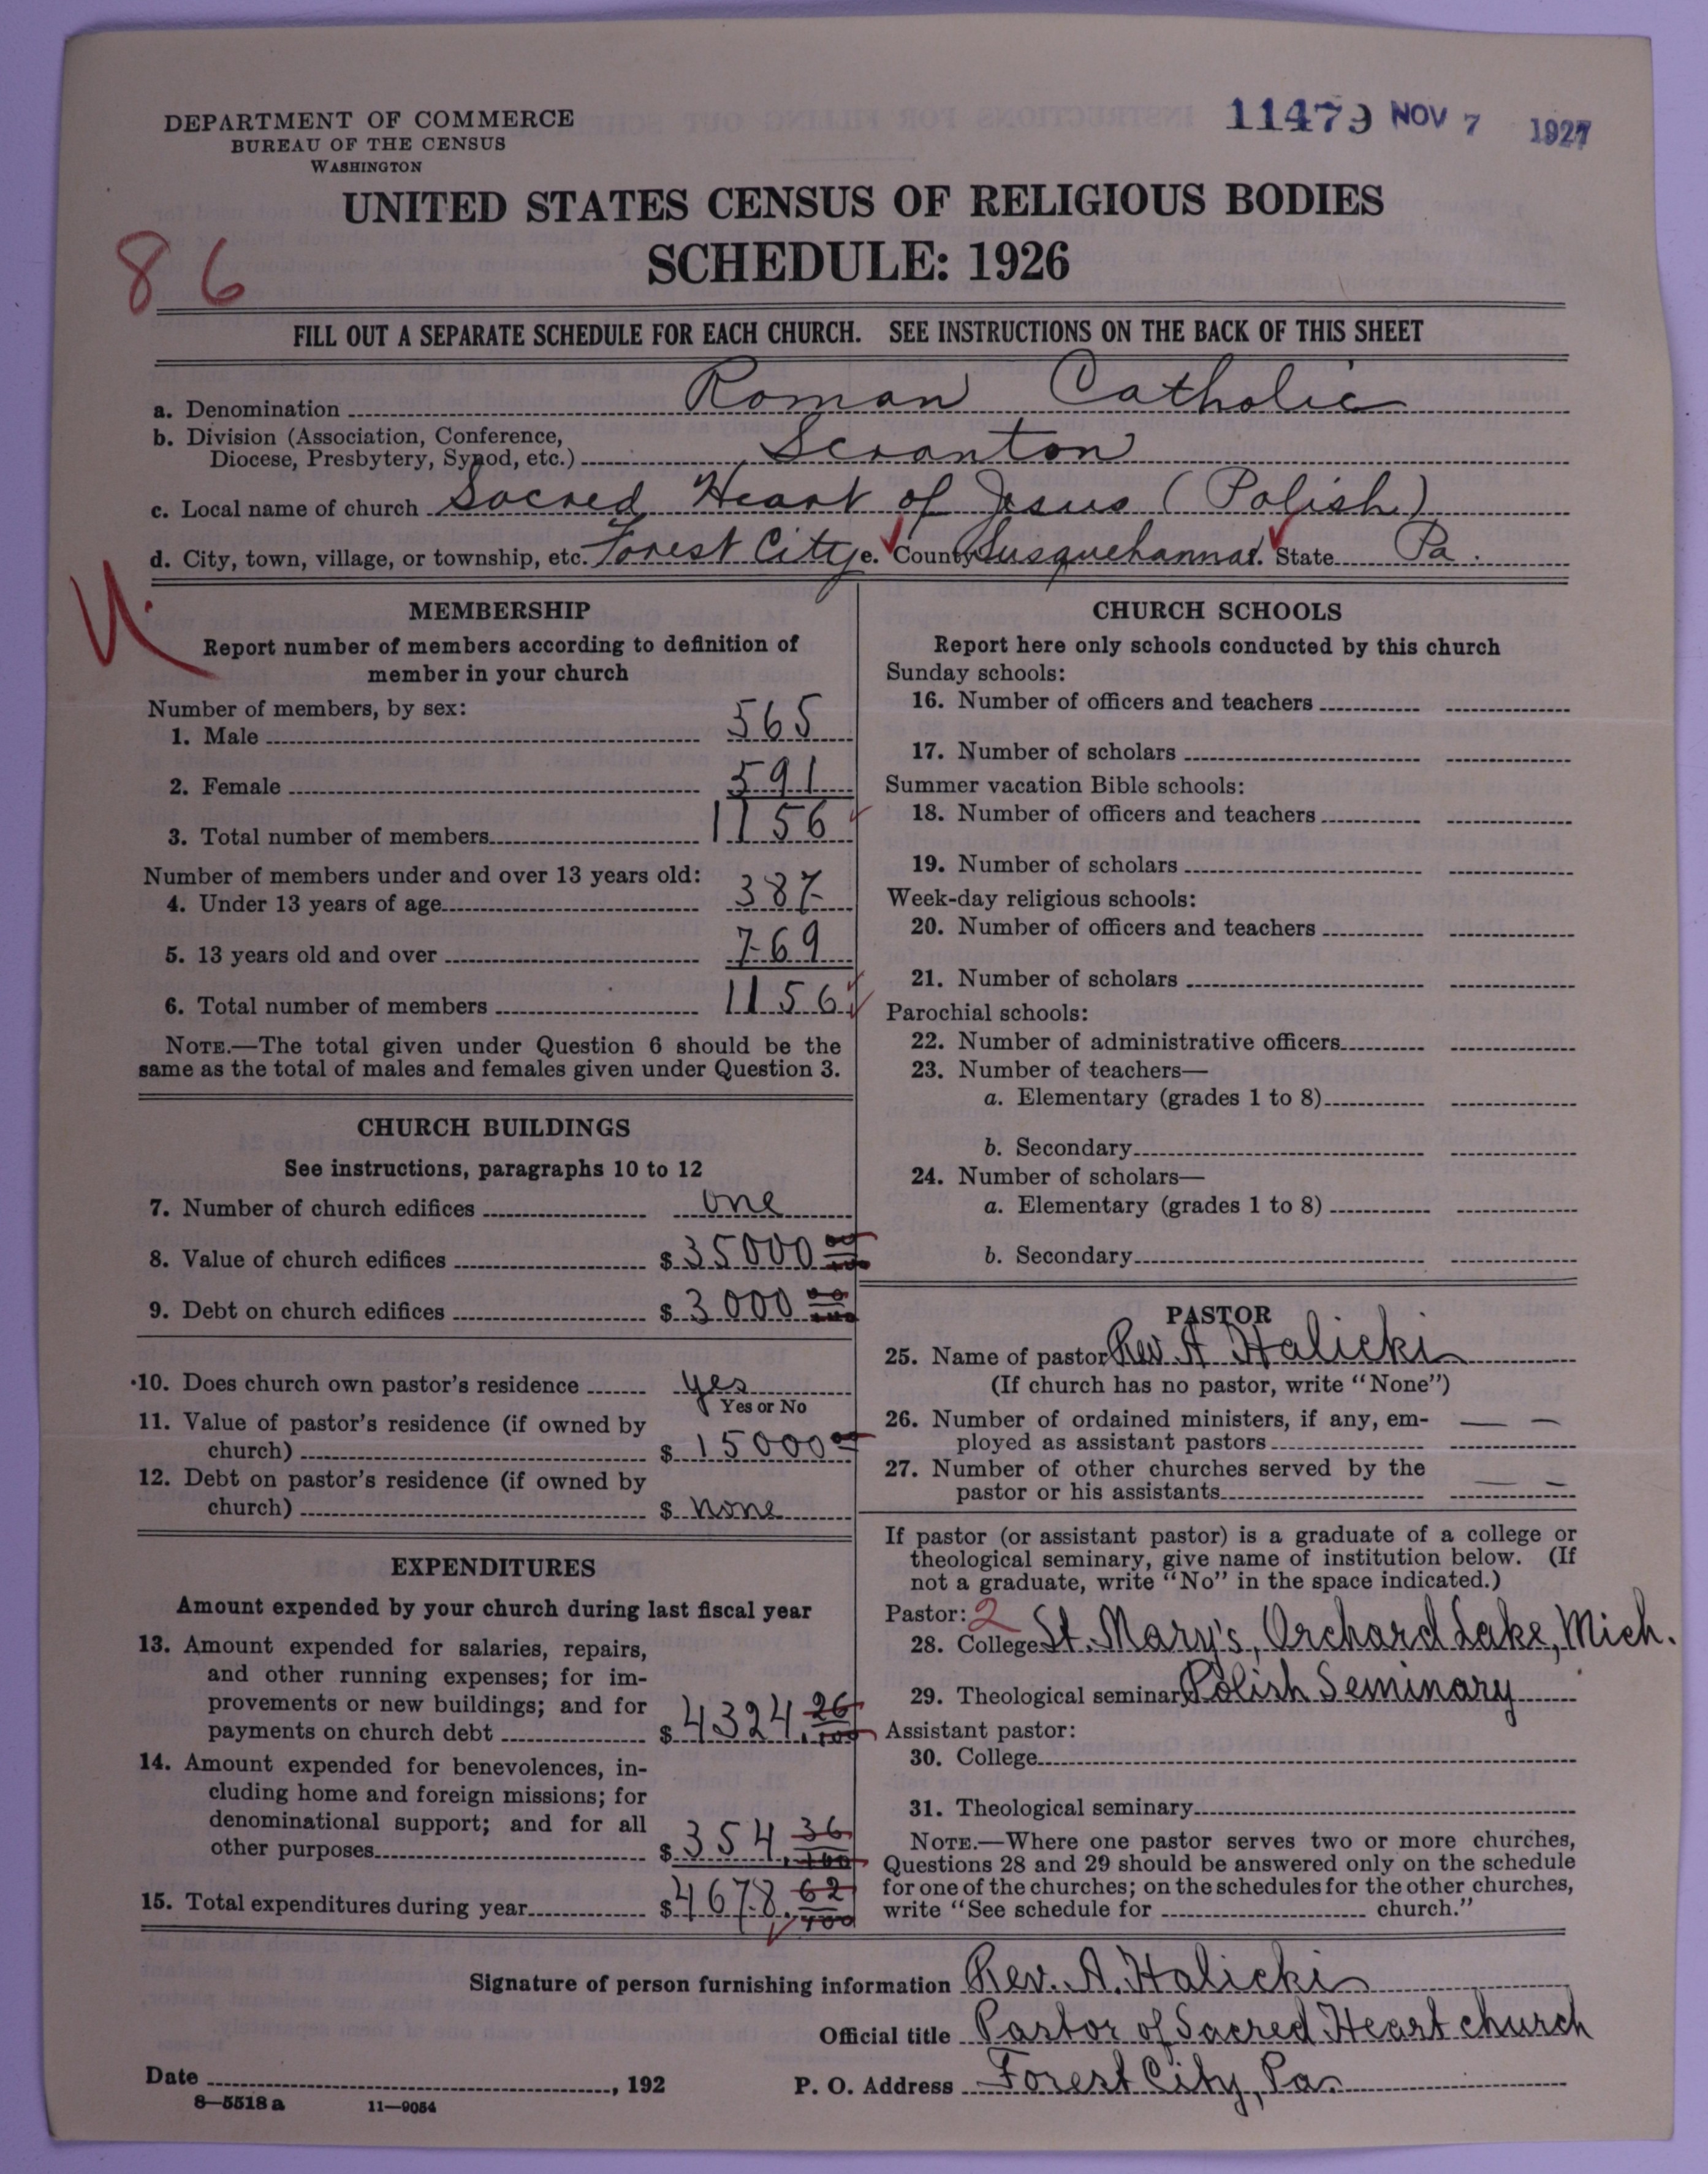 DEPARTMENT OF COMMERCE
BUREAU OF THE CENSUS
WASHINGTON
11479 NOV 7 1927
UNITED STATES CENSUS OF RELIGIOUS BODIES
SCHEDULE: 1926
86
FILL OUT A SEPARATE SCHEDULE FOR EACH CHURCH. SEE INSTRUCTIONS ON THE BACK OF THIS SHEET
a. Denomination Roman Catholic
b. Division (Association, Conference,
Diocese, Presbytery, Synod, etc.) Scranton
c. Local name of church Sacred Heart of Jesus (Polish)
d. City, town, village, or township, etc. Forest City e. County Susquehanna f. State Pa.
MEMBERSHIP
Report number of members according to definition of
member in your church
Number of members, by sex:
1. Male 565
2. Female 591
3. Total number of members 1156
Number of members under and over 13 years old:
4. Under 13 years of age 387
5. 13 years old and over 769
6. Total number of members 1156
NOTE.—The total given under Question 6 should be the
same as the total of males and females given under Question 3.
CHURCH BUILDINGS
See instructions, paragraphs 10 to 12
7. Number of church edifices one
8. Value of church edifices $ 35000 00/100
9. Debt on church edifices $ 3000 00/100
10. Does church own pastor's residence yes
Yes or No
11. Value of pastor's residence (if owned by
church) $ 15000 00
12. Debt on pastor's residence (if owned by
church) $ none
EXPENDITURES
Amount expended by your church during last fiscal year
13. Amount expended for salaries, repairs,
and other running expenses; for im-
provements or new buildings; and for
payments on church debt $ 4324. 26/100
14. Amount expended for benevolences, in-
cluding home and foreign missions; for
denominational support; and for all
other purposes $ 354. 36/100
15. Total expenditures during year $ 4678. 62/100
CHURCH SCHOOLS
Report here only schools conducted by this church
Sunday schools:
16. Number of officers and teachers
17. Number of scholars
Summer vacation Bible schools:
18. Number of officers and teachers
19. Number of scholars
Week-day religious schools:
20. Number of officers and teachers
21. Number of scholars
Parochial schools:
22. Number of administrative officers
23. Number of teachers—
a. Elementary (grades 1 to 8)
b. Secondary
24. Number of scholars—
a. Elementary (grades 1 to 8)
b. Secondary
PASTOR
25. Name of pastor Rev. A Halicki
(If church has no pastor, write "None")
26. Number of ordained ministers, if any, em-
ployed as assistant pastors — —
27. Number of other churches served by the
pastor or his assistants — —
If pastor (or assistant pastor) is a graduate of a college or
theological seminary, give name of institution below. (If
not a graduate, write "No" in the space indicated.)
Pastor: 2
28. College St. Mary's, Orchard Lake, Mich.
29. Theological seminary Polish Seminary
Assistant pastor:
30. College
31. Theological seminary
NOTE.—Where one pastor serves two or more churches,
Questions 28 and 29 should be answered only on the schedule
for one of the churches; on the schedules for the other churches,
write "See schedule for church."
Signature of person furnishing information Rev. A. Halicki
Official title Pastor of Sacred Heart church
Date , 192 P. O. Address Forest City, Pa.
8—5518 a 11—9054